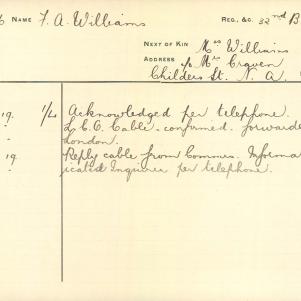 NAME F. A. Williams REG., &C. 32nd B
NEXT OF KIN Mrs Williams
ADDRESS c/o Mrs Craven
Childers St. N. A.
19. 1/4 Acknowledged per telephone.
Cable - confirmed. forwarde
London.
19 Reply cable from Commrs. Informa
icated Inquirer per telephone.